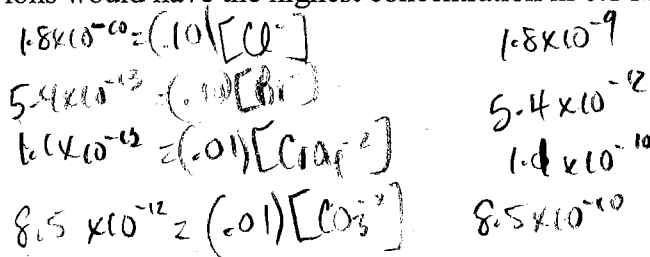 ions would have the highest concentration in
1.8x10⁻¹⁰=(.10)[Cl⁻] 1.8x10⁻⁹
5.4x10⁻¹³=(.10)[Br⁻] 5.4x10⁻¹²
1.1x10⁻¹²=(.01)[CrO₄⁻²] 1.1x10⁻¹⁰
8.5x10⁻¹²=(.01)[CO₃⁻²] 8.5x10⁻¹⁰